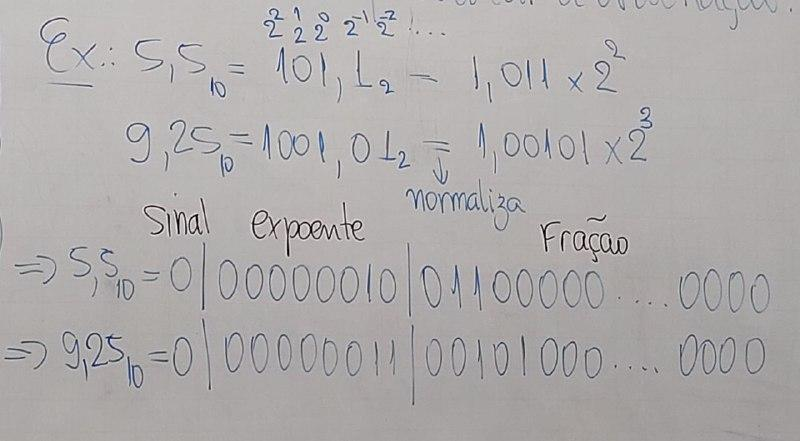 2² 2¹ 2⁰ 2⁻¹ 2⁻² ...
Ex.: 5,5₁₀ = 101,1₂ = 1,011 × 2²
9,25₁₀ = 1001,01₂ = 1,00101 × 2³
↓
normaliza
Sinal expoente Fração
⇒ 5,5₁₀ = 0 | 00000010 | 01100000 .... 0000
⇒ 9,25₁₀ = 0 | 00000011 | 00101000 .... 0000